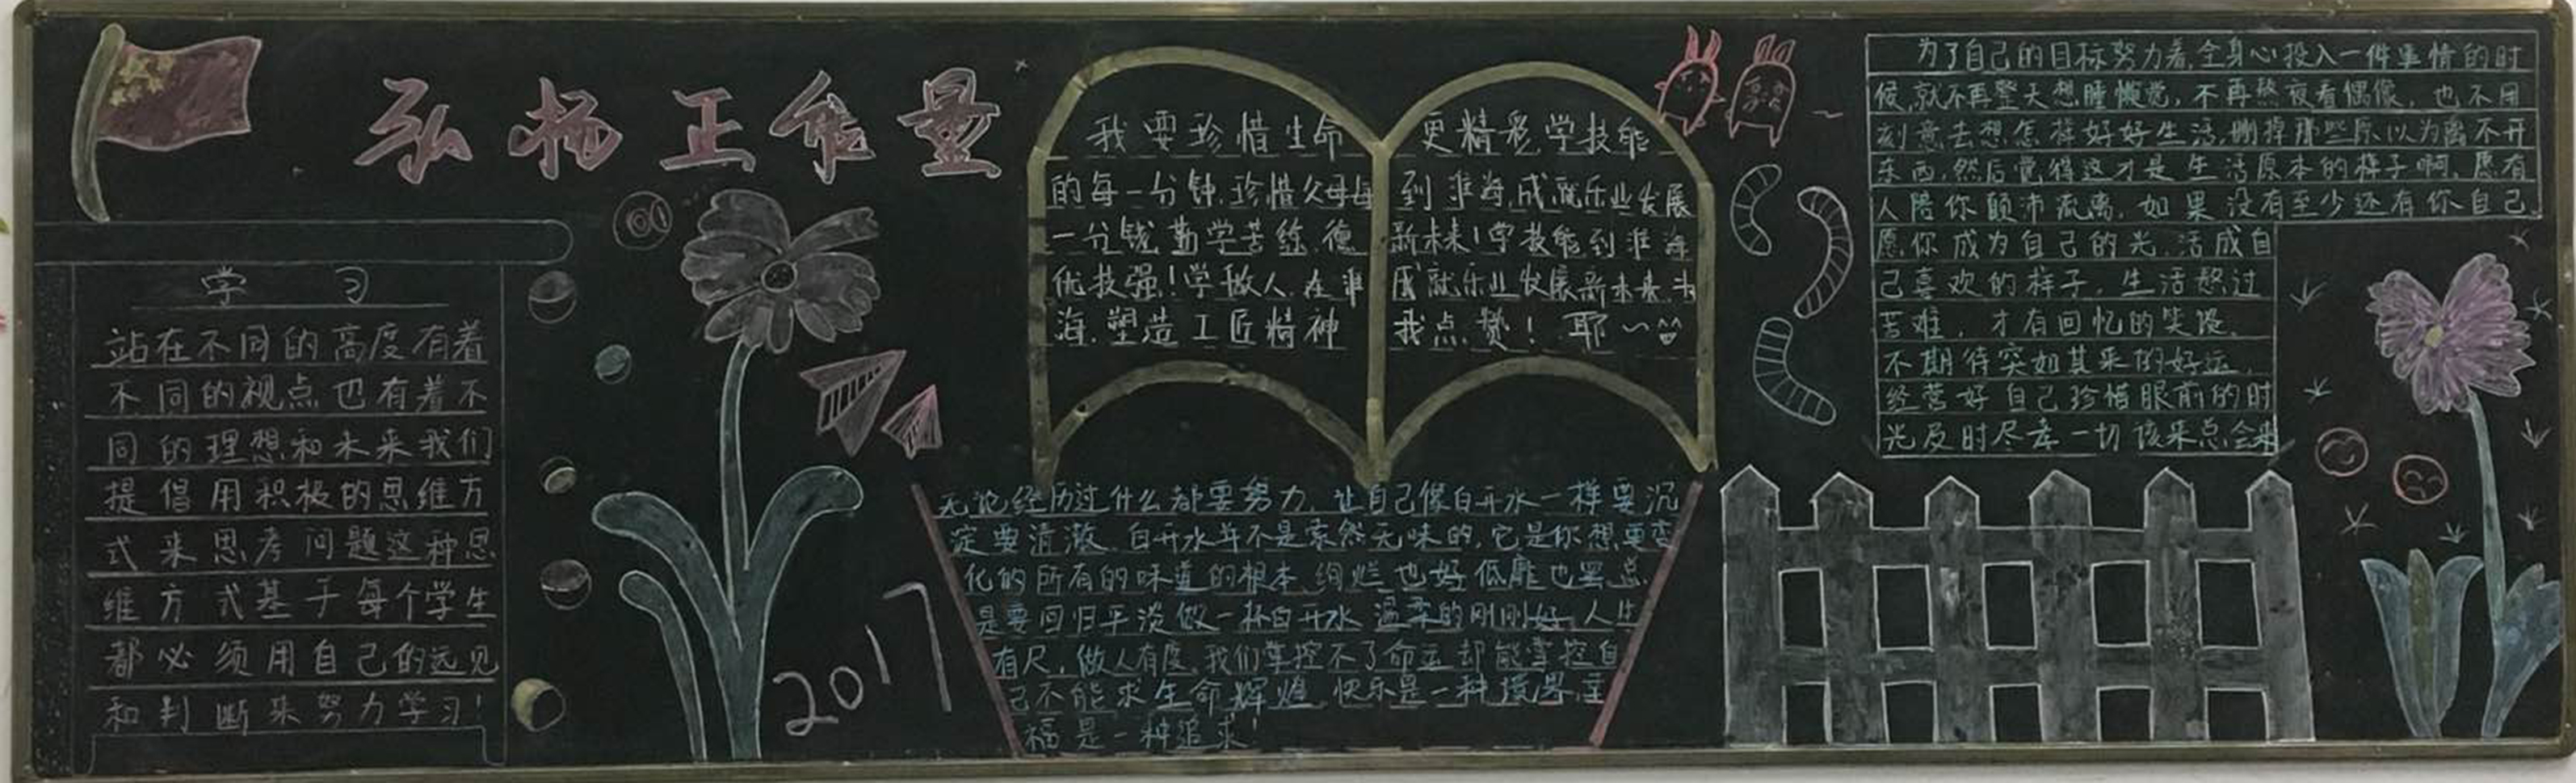 弘扬正能量
学 习
站在不同的高度有着
不同的视点也有着不
同的理想和未来我们
提倡用积极的思维方
式来思考问题这种思
维方式基于每个学生
都必须用自己的远见
和判断来努力学习!
2017
我要珍惜生命
的每一分钟,珍惜父母每
一分钱,勤学苦练,德
优技强!学做人,在淮
海,塑造工匠精神
更精彩,学技能
到淮海,成就乐业发展
新未来!学技能到淮海
成就乐业发展新未来,为
我点赞!耶~
无论经历过什么都要努力,让自己像白开水一样要沉
淀要清澈.白开水并不是索然无味的,它是你想要变
化的所有的味道的根本.绚烂也好低靡也罢,总
是要回归平淡做一杯白开水温柔的刚刚好.人生
有尺,做人有度,我们掌控不了命运却能掌控自
己不能求生命辉煌.快乐是一种境界,幸
福是一种追求!
为了自己的目标努力着,全身心投入一件事情的时
候,就不再整天想睡懒觉,不再熬夜看偶像,也不用
刻意去想怎样好好生活,删掉那些原以为离不开
东西,然后觉得这才是生活原本的样子啊,愿有
人陪你颠沛流离,如果没有至少还有你自己
愿你成为自己的光,活成自
己喜欢的样子,生活熬过
苦难,才有回忆的笑
不期待突如其来的好运,
经营好自己珍惜眼前的时
光及时尽孝一切该来总会来